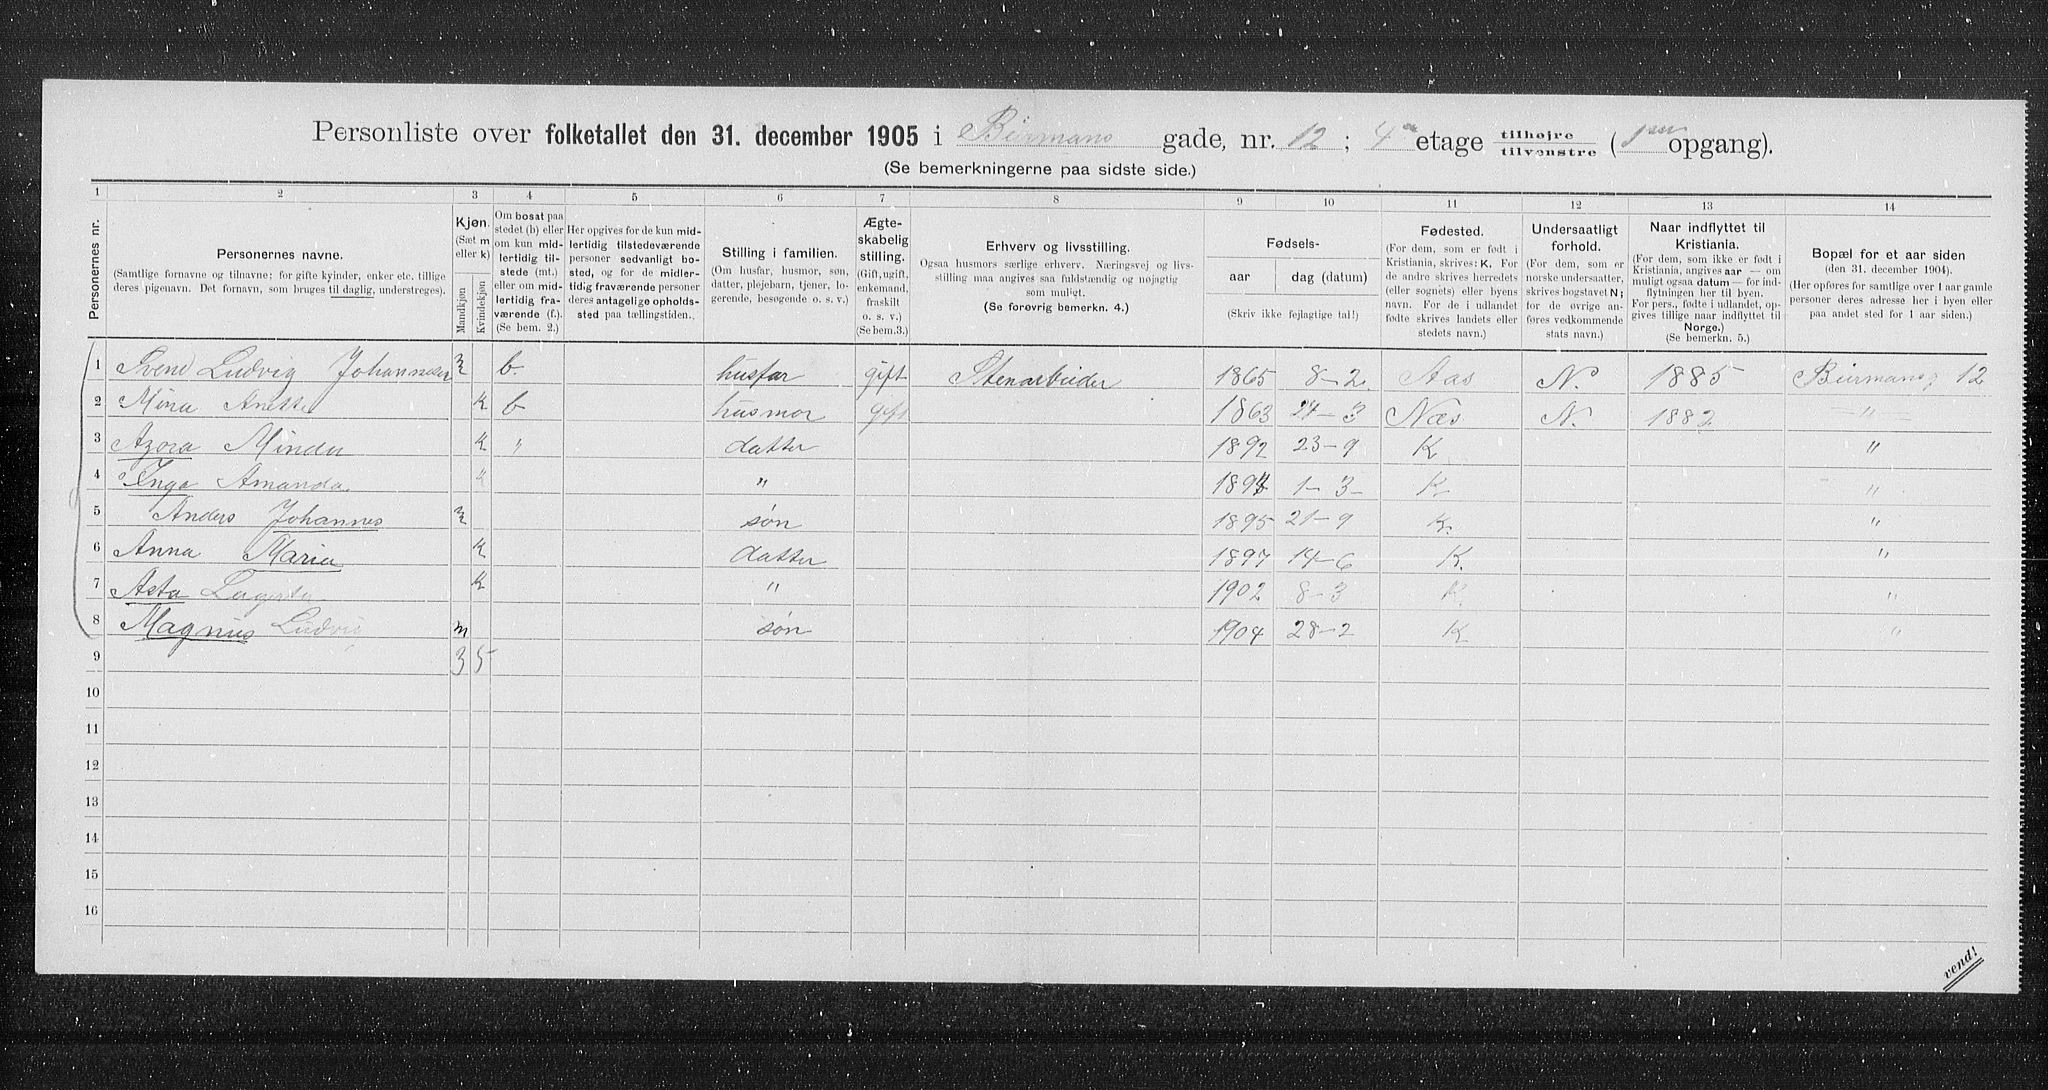 Personliste over folketallet den 31. december 1905 i Biermans gade, nr. 12; 4de etage tilhøjre tilvenstre (1ste opgang).
(Se bemerkningerne paa sidste side.)
1 2 3 4 5 6 7 8 9 10 11 12 13 14
Personernes nr.
Personernes navne.
(Samtlige fornavne og tilnavne; for gifte kvinder, enker etc. tillige deres pigenavn. Det fornavn, som bruges til daglig, understreges).
Kjøn.
(Sæt m eller k)
Mandkjøn
Kvindekjøn
Om bosat paa stedet (b) eller om kun midlertidig tilstede (mt.) eller om midlertidig fraværende (f.). (Se bem. 2.)
Her opgives for de kun midlertidig tilstedeværende personer sedvanlig bosted, og for de midlertidig fraværende personer deres antagelige opholdssted paa tællingstiden.
Stilling i familien.
(Om husfar, husmor, søn, datter, plejebarn, tjener, logerende, besøgende o. s. v.)
Ægteskabelig stilling.
(Gift, ugift, enkemand, fraskilt o. s. v.) (Se bem. 3.)
Erhverv og livsstilling.
Ogsaa husmors særlige erhverv. Næringsvej og livsstilling maa angives saa fuldstændig og nøjagtig som muligt.
(Se forøvrig bemerkn. 4.)
Fødsels-
aar
dag (datum)
(Skriv ikke fejlagtige tal!)
Fødested.
(For dem, som er født i Kristiania, skrives: K. For de andre skrives herredets (eller sognets) eller byens navn. For de i udlandet fødte skrives landets eller stedets navn.)
Undersaatligt forhold.
(For dem, som er norske undersaatter, skrives bogstavet N; for de øvrige anføres vedkommende stats navn.)
Naar indflyttet til Kristiania.
(For dem, som ikke er født i Kristiania, angives aar — om muligt ogsaa datum — for indflytningen her til byen. For pers., fødte i udlandet, opgives tillige naar indflyttet til Norge.)
(Se bemerkn. 5.)
Bopæl for et aar siden
(den 31. december 1904).
(Her opføres for samtlige over 1 aar gamle personer deres adresse her i byen eller paa andet sted for 1 aar siden.)
1 Svend Ludvig Johannesen m b. husfar gift Stenarbeider 1865 8–2. Aas N. 1885 Biermansg 12
2 Mina Anette k b husmor gift 1863 27–3 Næs N. 1882 – " –
3 Azora Minda k " datter 1892 23–9 K "
4 Inga Amanda k " 1894 1–3– K. "
5 Anders Johannes m søn 1895 21–9 K. "
6 Anna Maria k datter 1897 14–6 K. "
7 Asta k " 1902 8–3 K. "
8 Magnus Ludvig m søn 1904 28–2 K "
9 3 5
10
11
12
13
14
15
16
vend!